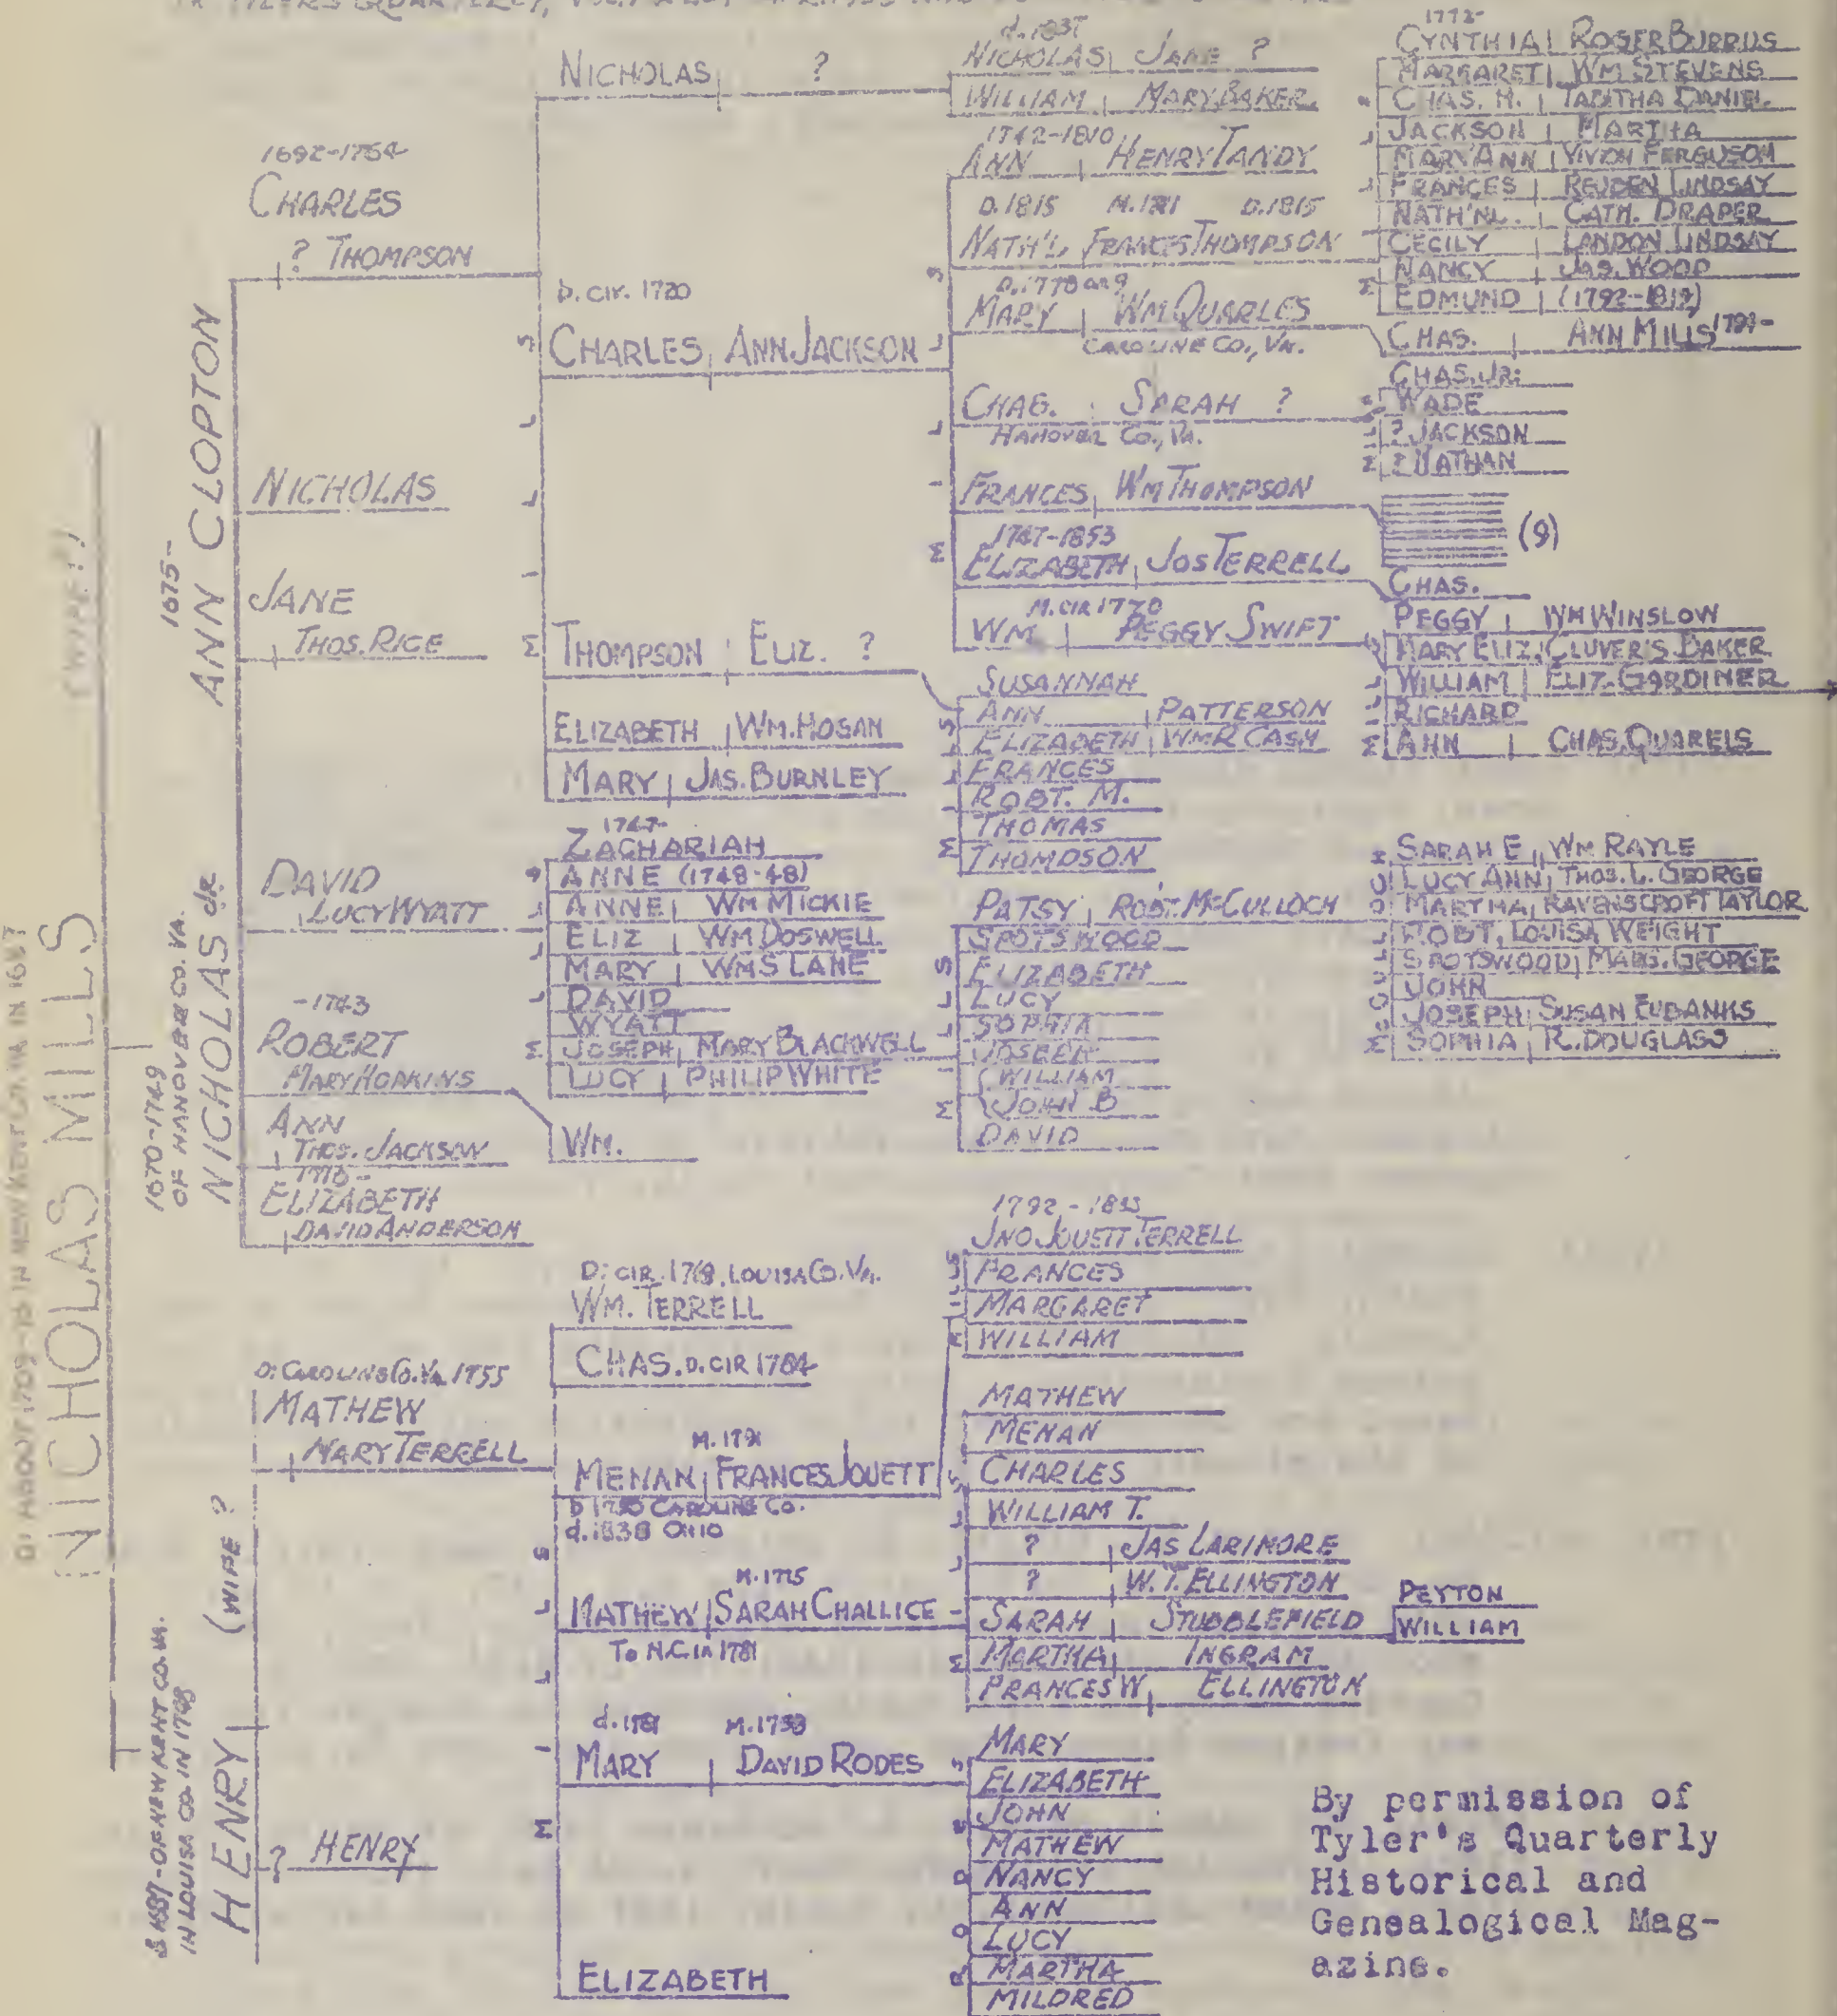 NICHOLAS MILLS
1670-1749
OF HANOVER CO. VA.
NICHOLAS JR
1675-
ANN CLOPTON
1692-1764
CHARLES
? THOMPSON
NICHOLAS
JANE
THOS. RICE
DAVID
LUCY WYATT
-1743
ROBERT
MARY HOPKINS
ANN
THOS. JACKSON
ELIZABETH
DAVID ANDERSON
IN LOUISA CO. IN 1768
HENRY (WIFE ?)
MATHEW
MARY TERRELL
? HENRY
NICHOLAS ?
CHARLES ANN JACKSON
THOMPSON ELIZ. ?
ELIZABETH WM. HOGAN
MARY JAS. BURNLEY
1747-
ZACHARIAH
ANNE (1748-48)
ANNE WM MICKIE
ELIZ WM DOSWELL
MARY WM S LANE
DAVID
WYATT
JOSEPH MARY BLACKWELL
LUCY PHILIP WHITE
WM.
WM. TERRELL
CHAS. D. CIR 1784
MENAN FRANCES JOUETT
d. 1838 OHIO
M. 1775
MATHEW SARAH CHALLICE
TO N.C. IN 1781
MARY DAVID RODES
ELIZABETH
NICHOLAS JANE ?
WILLIAM MARY BAKER
1742-1810
ANN HENRY TANDY
D. 1815 D. 1815
NATH'L FRANCES THOMPSON
MARY WM QUARLES
CAROLINE CO., VA.
CHAS. SARAH ?
HANOVER CO., VA.
FRANCES WM THOMPSON
1747-1853
ELIZABETH JOS TERRELL
M. CIR 1770
WM PEGGY SWIFT
SUSANNAH
ANN PATTERSON
ELIZABETH WM R CASH
FRANCES
ROBT. M.
THOMAS
THOMPSON
PATSY ROBT. McCULLOCH
SPOTSWOOD
ELIZABETH
LUCY
SOPHIA
JOSEPH
WILLIAM
JOHN B
DAVID
JNO JOUETT TERRELL
FRANCES
MARGARET
WILLIAM
MATHEW
MENAN
CHARLES
WILLIAM T.
? JAS LARIMORE
? W. T. ELLINGTON
SARAH STUBBLEFIELD
MARTHA INGRAM
FRANCES W. ELLINGTON
MARY
ELIZABETH
JOHN
MATHEW
NANCY
ANN
LUCY
MARTHA
MILDRED
1772-
CYNTHIA ROGER BURRUS
MARGARET WM STEVENS
CHAS. H. TABITHA DANIEL
JACKSON MARTHA
MARY ANN VIVION FERGUSON
FRANCES REUBEN LINDSAY
NATH'NL. CATH. DRAPER
CECILY LANDON LINDSAY
NANCY JAS. WOOD
EDMUND
CHAS. ANN MILLS
CHAS. JR.
WADE
? JACKSON
? NATHAN
CHAS.
PEGGY WM WINSLOW
MARY ELIZ. CLUVERS BAKER
WILLIAM ELIZ. GARDINER
RICHARD
ANN CHAS. QUARELS
SARAH E WM RAYLE
LUCY ANN THOS. L. GEORGE
MARTHA RAVENSCROFT TAYLOR
ROBT. LOUISA WEIGHT
SPOTSWOOD MARG. GEORGE
JOHN
JOSEPH SUSAN EUBANKS
SOPHIA R. DOUGLASS
PEYTON
WILLIAM
By permission of
Tyler's Quarterly
Historical and
Genealogical Mag-
azine.